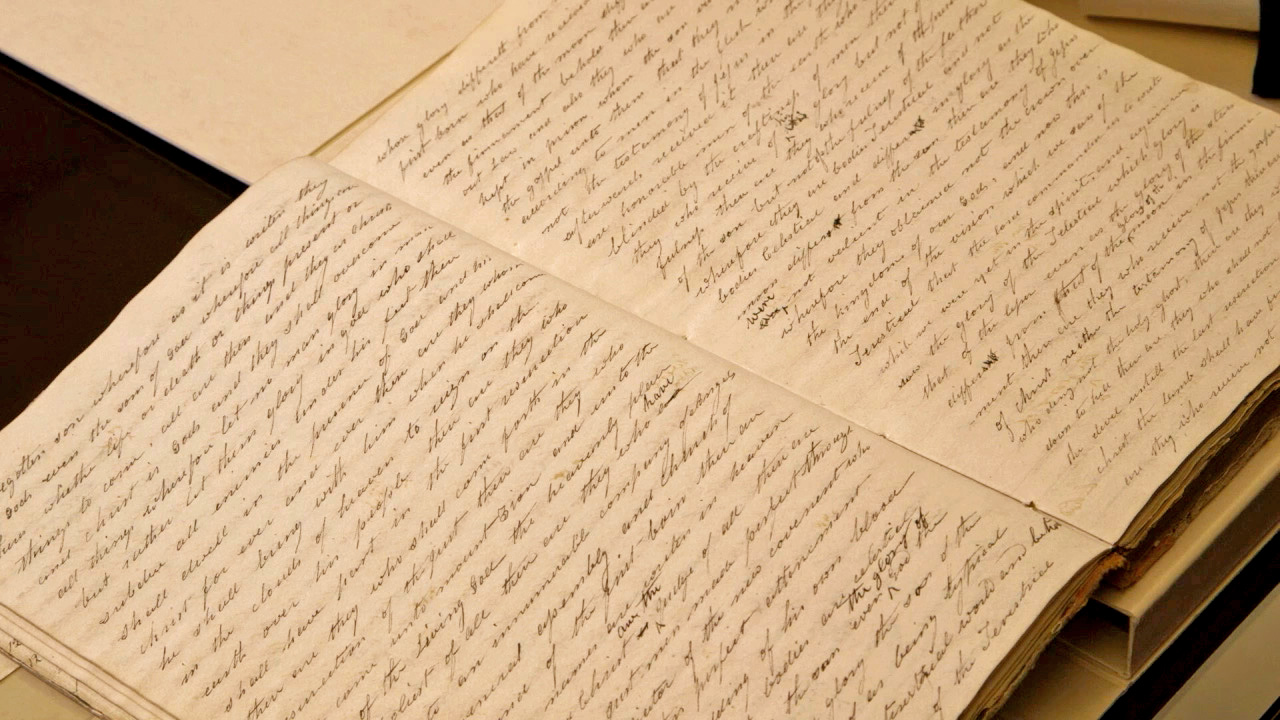 gotten son wherefore as it is writen they
Gods even the sons of God wherefore all things are
whether life or death or things present or
things to come all are theirs and they are christs
and christ is Gods and they shall overcome
all things wherefore let no man glory in man
but rather let him glory in God who shall
subdue all enemies under his feet these
shall dwell in the presence of God and his
christ for ever and ever these are they whom
he shall bring with him when he shall come
in the clouds of heaven to reign on the
earth over his people these are they who
shall have part in the first resurrection
these are they who shall come forth in the
resurrection of the just these are they who
are come unto mount Zion and unto the
of the living God the heavenly place
holiest of all these are they who have
to an innumerable company of angels
general assembly and church of
of the first born these are
names are writen in heaven
christ the judge of all these are
just men made perfect through
mediator of the new covenant who
perfect attonement
shedding of his own blood
bodies are celestial
glory of the sun even the glory of God the
the sun of the
being typical
terestrial world
of the Terestrial
whose glory differeth from
first born who have received
even as that of the moon
the firmament behold these
out law and also they who
kept in prison whom the son
the gospel unto them that they might
according to men in the flesh who
not the testamony of Jesus in
afterwards received it these are
are honorable men of the earth who
blinded by the craftiness of men these
they who receive of his glory but not of
fulness these are they who receive of the presence
of the son but not of the fulness of the father
wherefore they are bodies Terestrial and not
bodies celestial and differ in glory as the
moon differs from the sun these are they who
were not valient in the testamony of Jesus
wherefore they obtained not the crown over
the kingdom of our God. and now this is
the end of the vision which we saw of the
Terestrial that the lord commanded us to write
while we were yet in the spirit and again we
saw the glory of the Telestial which glory is
that of the lesser even as the glory of the stars
differs from that of the glory of the moon in the firma
ment these are they who receive not the gospel
of christ neither the testamony of Jesus these
who deny not the holy ghost. these are they
down to hell these are they who shall not
the devil untill the last resurrection
christ the lamb shall have
are they who receive not